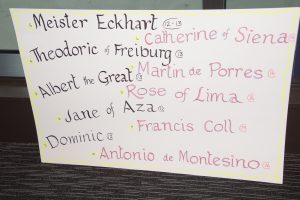 Meister Eckhart 12-13
Catherine of Siena
Theodoric of Freiburg
Martin de Porres
Albert the Great
Rose of Lima
Jane of Aza
Francis Coll
Dominic
Antonio de Montesino